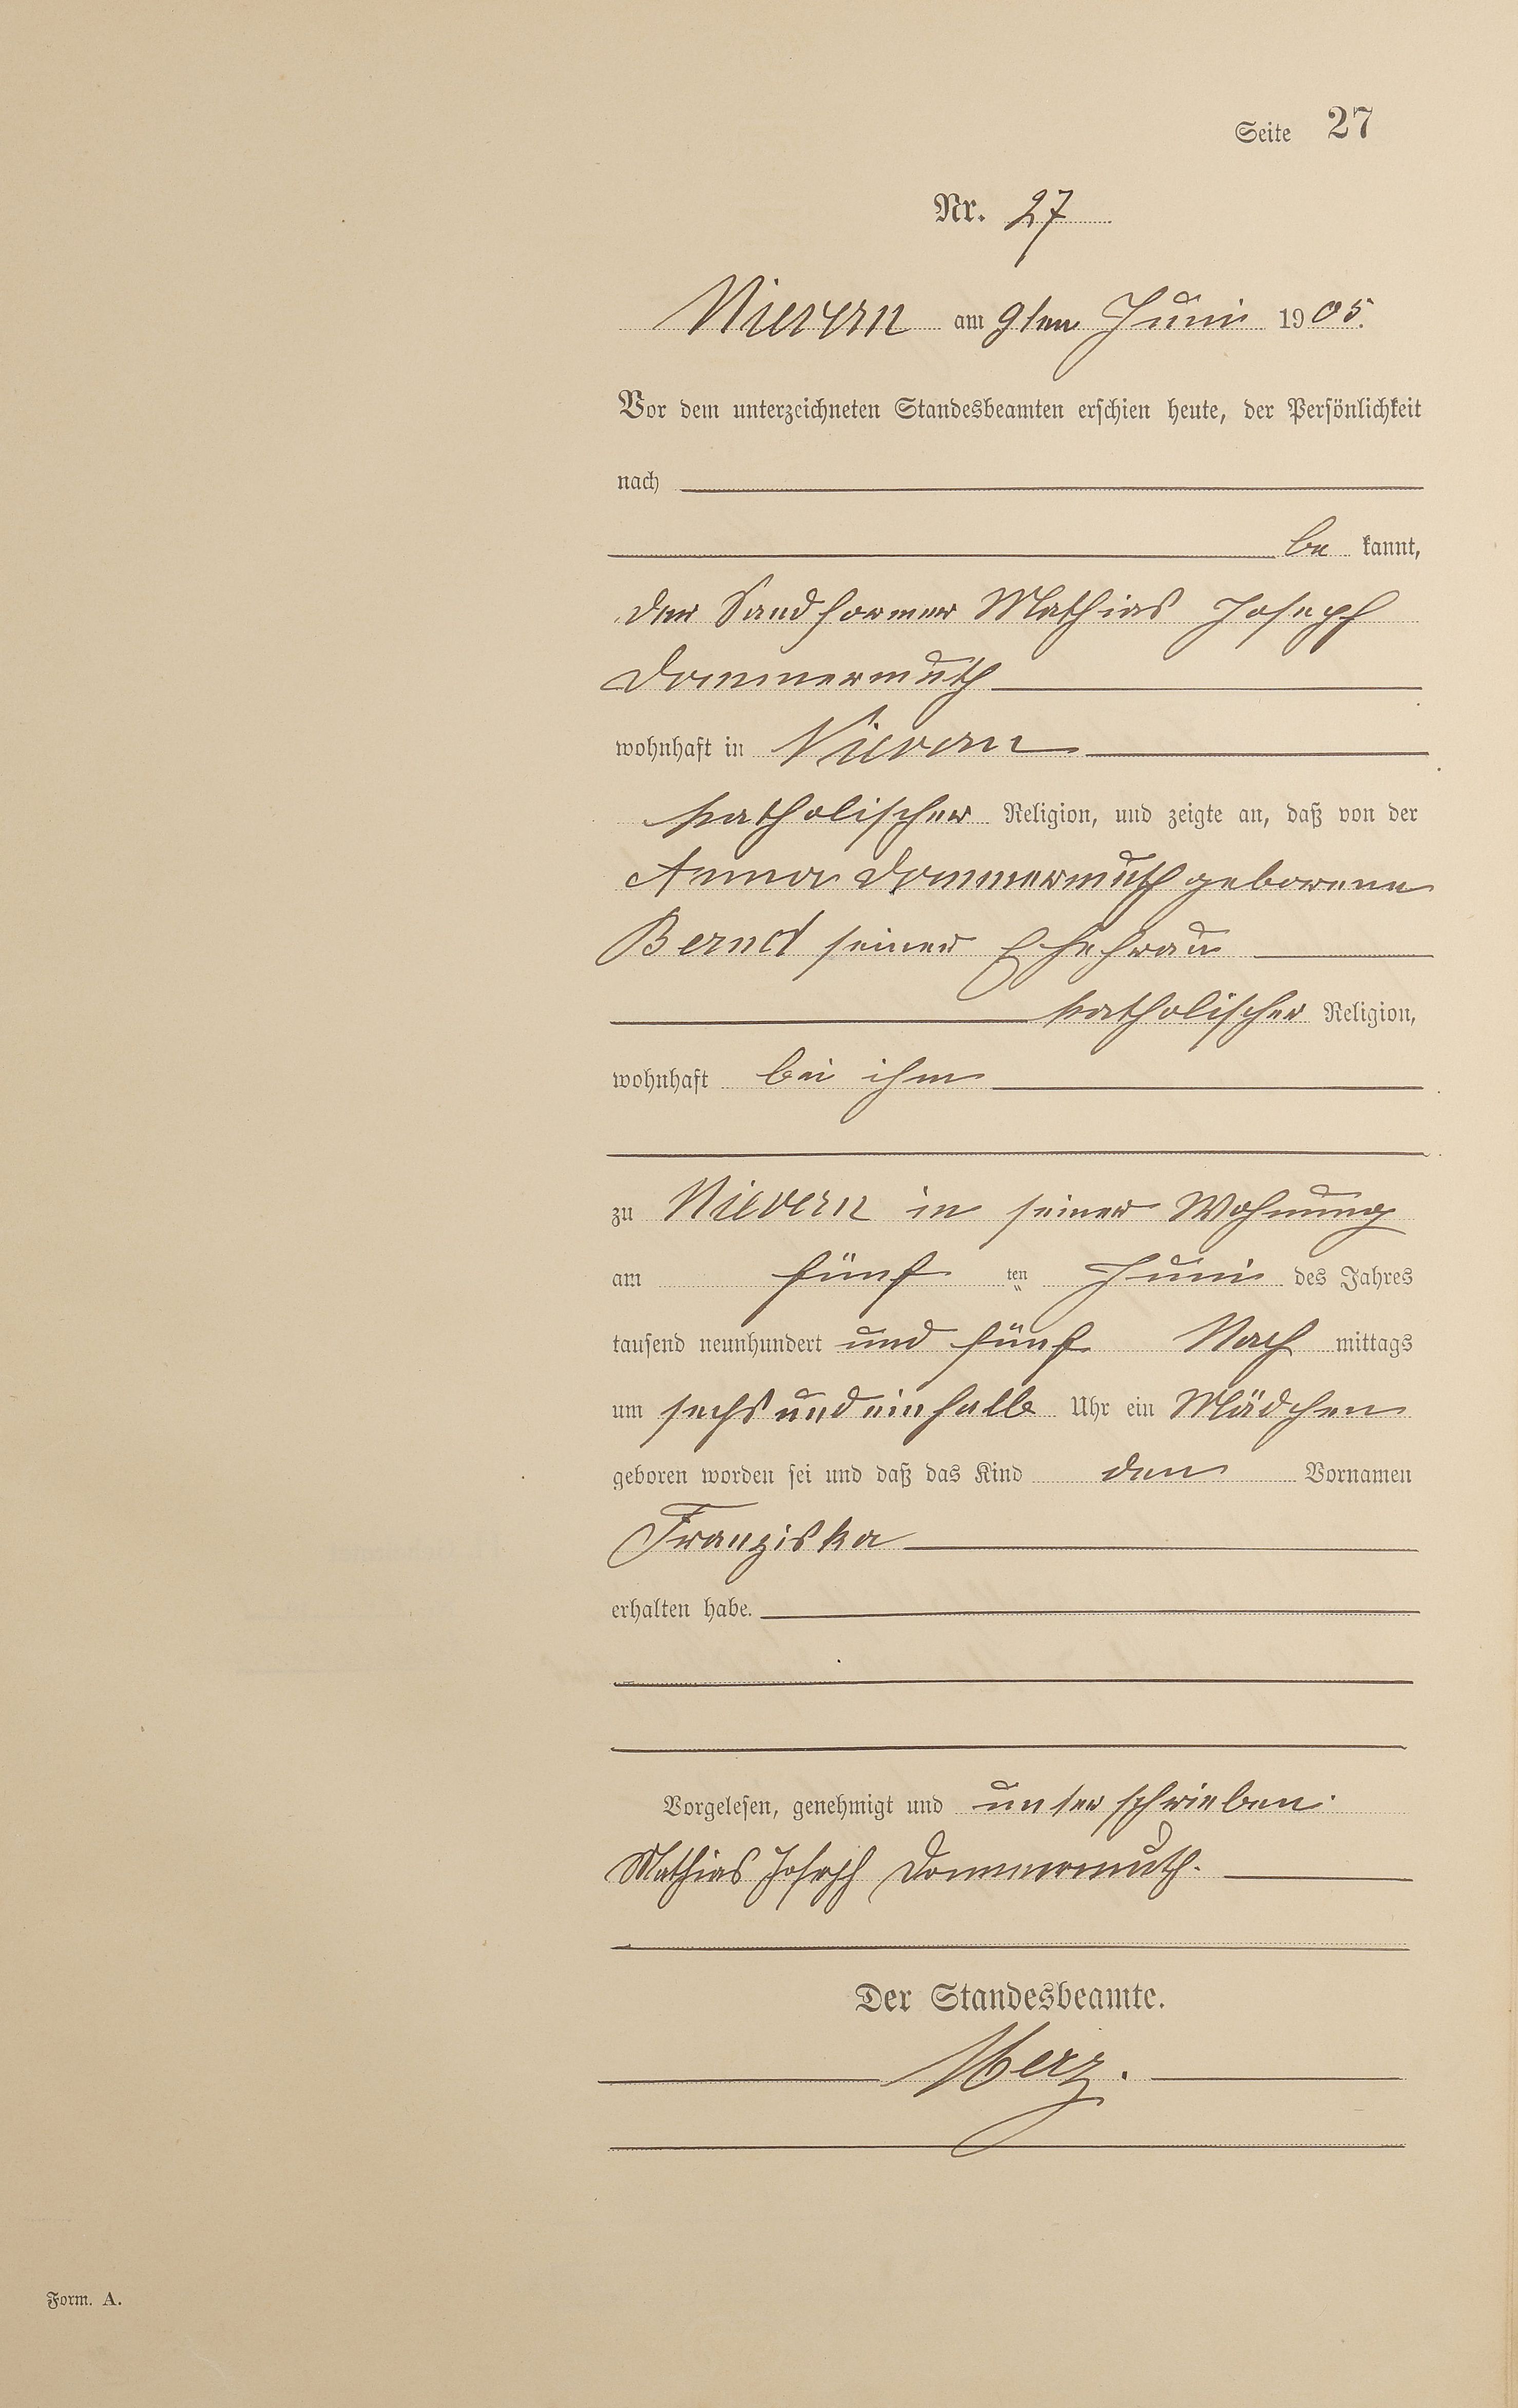 Seite 27
Nr. 27
Nievern am 9ten Juni 1905.
Vor dem unterzeichneten Standesbeamten erschien heute, der Persönlichkeit
nach
be kannt,
der Sandformer Mathias Joseph
Dommermuth
wohnhaft in Nievern
katholischer Religion, und zeigte an, daß von der
Anna Dommermuth geborene
Bernd seiner Ehefrau
katholischer Religion,
wohnhaft bei ihm
zu Nievern in seiner Wohnung
am fünf ten Juni des Jahres
tausend neunhundert und fünf Nach mittags
um sechs und ein halb Uhr ein Mädchen
geboren worden sei und daß das Kind den Vornamen
Franziska
erhalten habe.
Vorgelesen, genehmigt und unterschrieben.
Mathias Joseph Dommermuth.
Der Standesbeamte.
Merz.
Form. A.